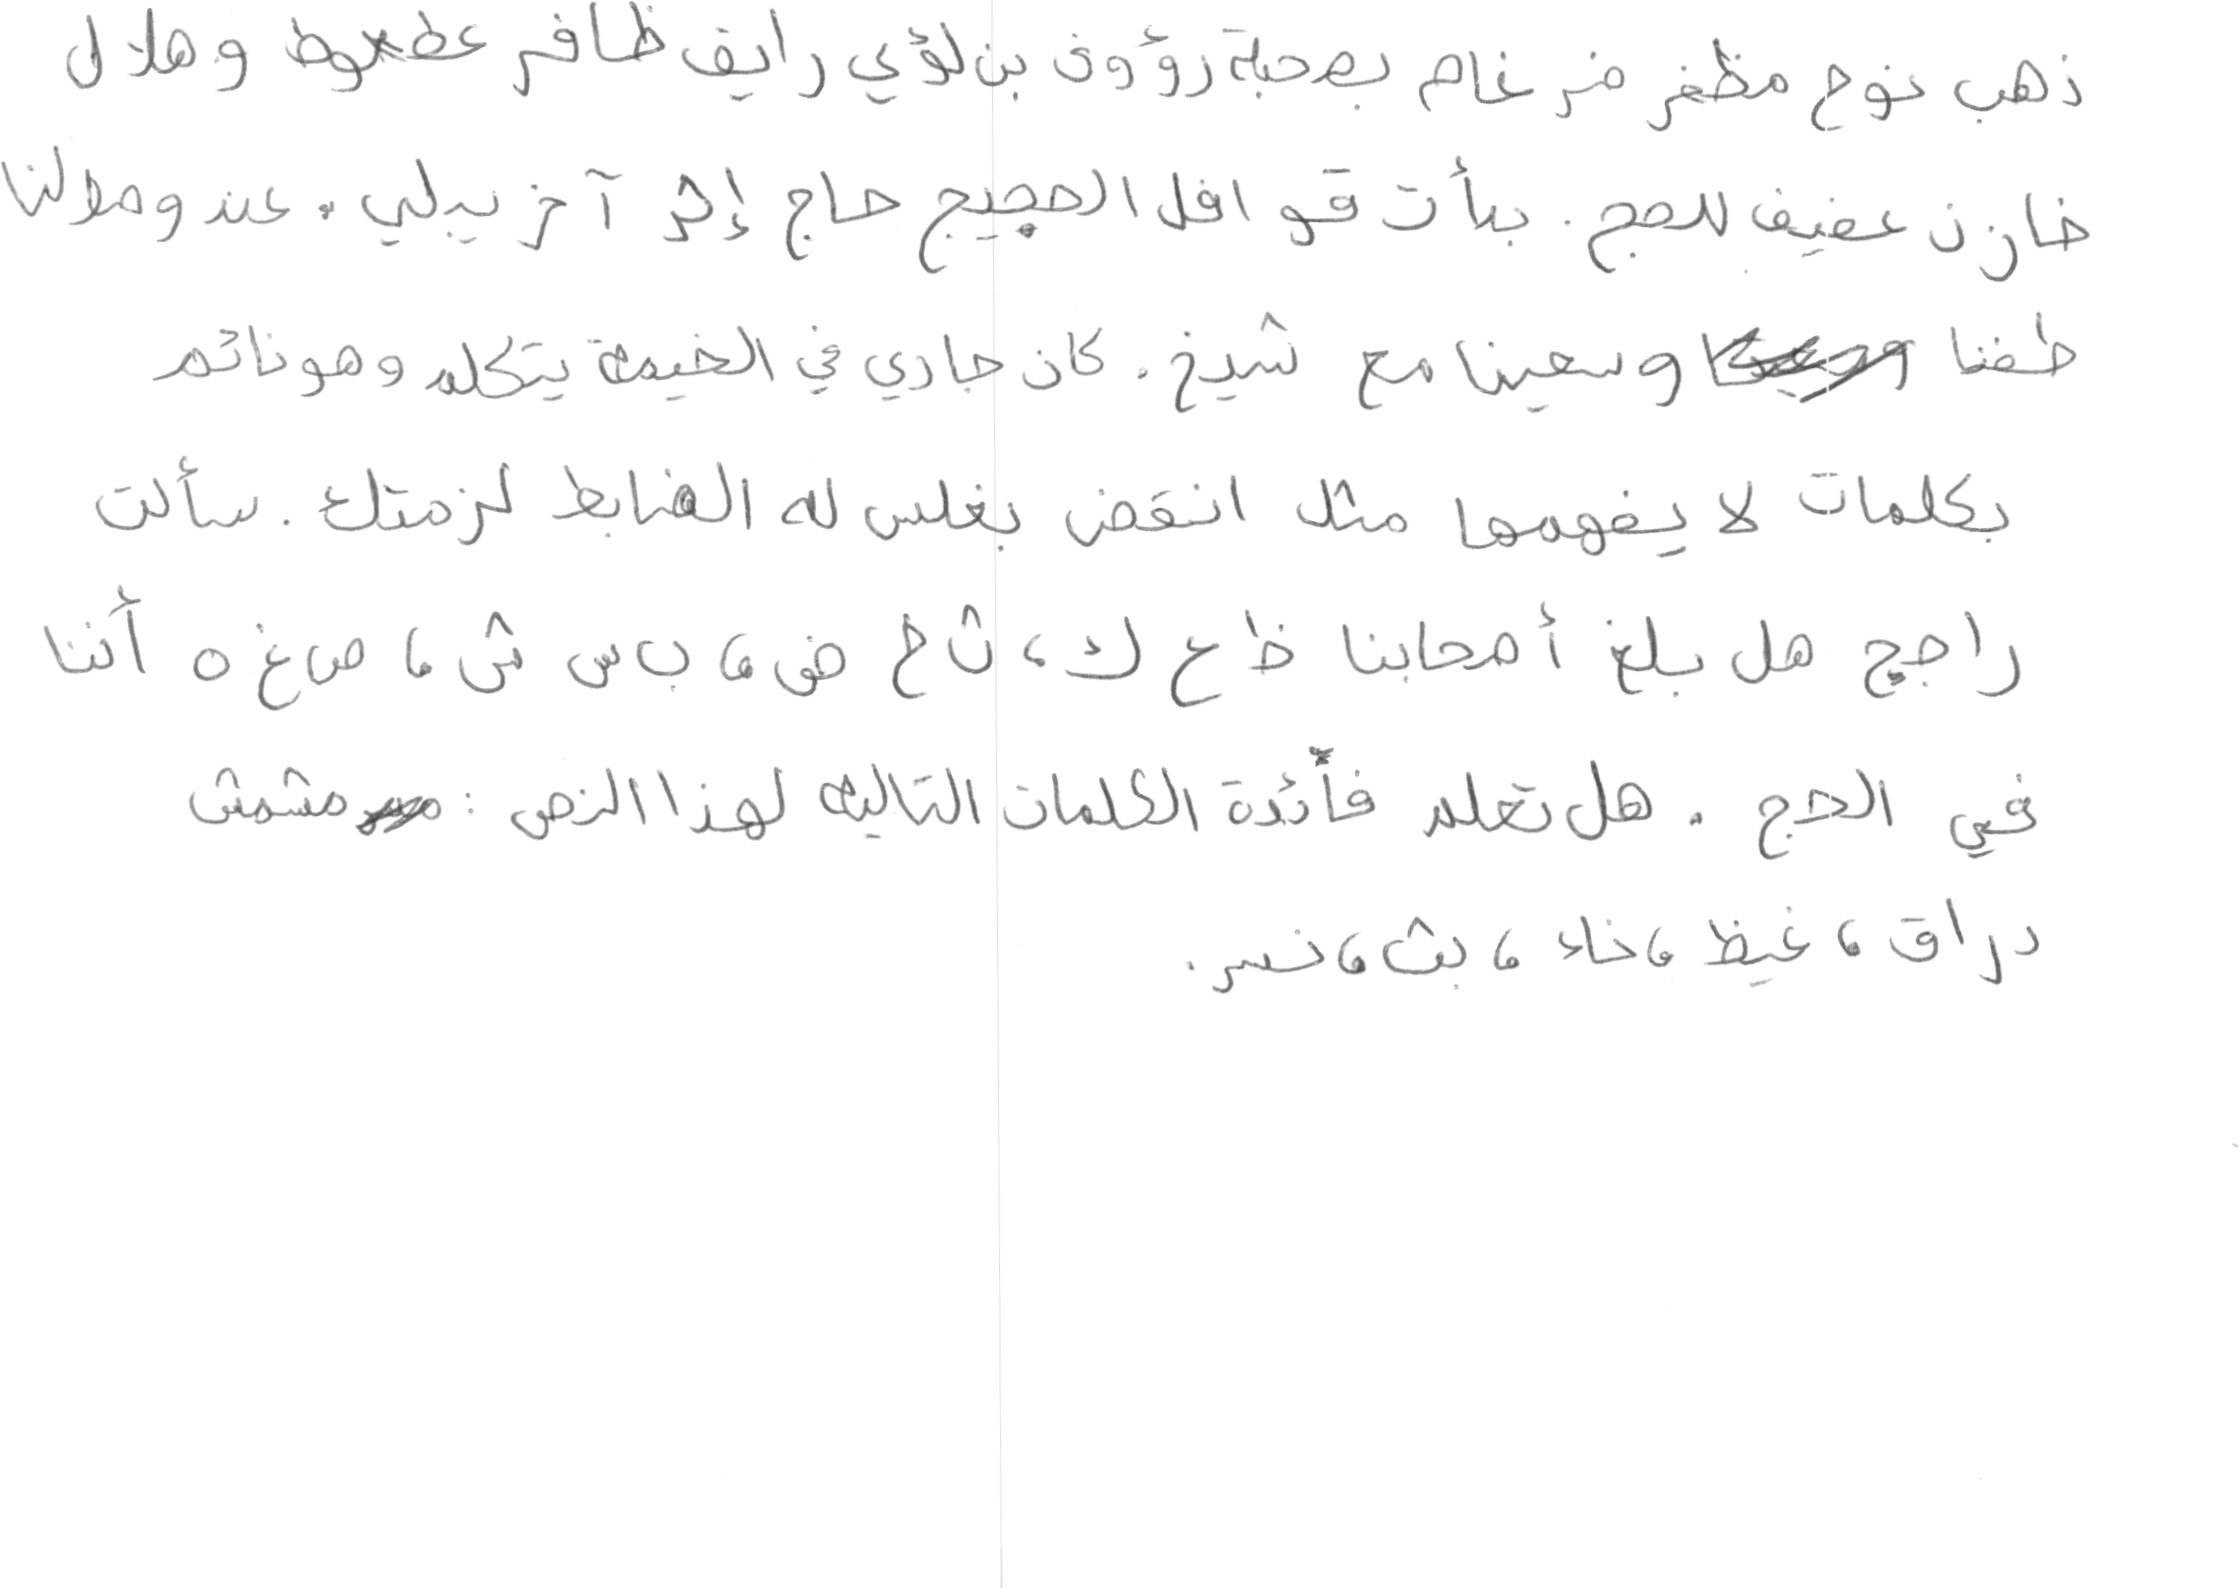 ذهب نوح مظفر ضرغام بصحبة رؤوف بن لؤي رايف ظافر عطعوط وهلال
خازن عفيف للحج. بدأت قوافل الحجيج حاج إثر آخر يدلي. عند وصولنا
طفنا وسعينا مع شيخ. كان جاري في الخيمة يتكلم وهو نائم
بكلمات لا يفهمها مثل انقض بغلس له الضابط لزمتك. سألت
راجح هل بلغ أصحابنا ظ ع ك، ث خ ض، ب س ش، ص غ ه أننا
في الحج. هل تعلم فائدة الكلمات التالية لهذا النص: مشمش
دراق، غيظ، خاء، بث، نسر.